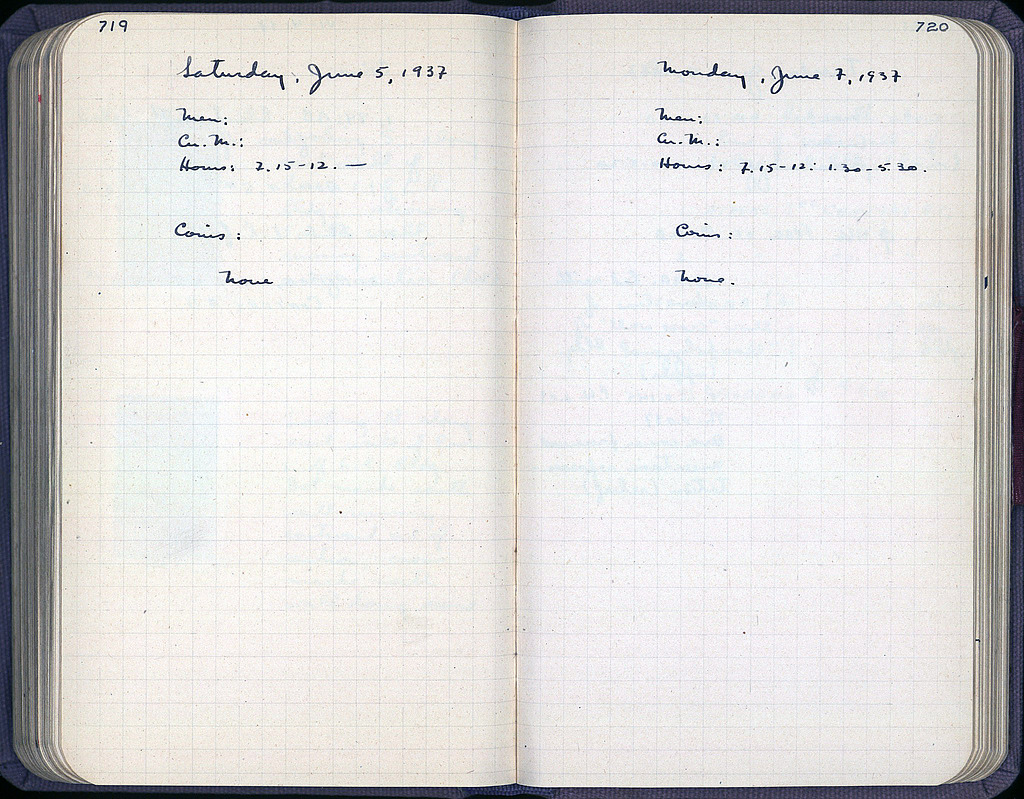 719
Saturday, June 5, 1937
Men:
Cu. M.:
Hours: 7.15-12. —
Coins:
None
720
Monday, June 7, 1937
Men:
Cu. M.:
Hours: 7.15-12: 1.30-5.30.
Coins:
None.